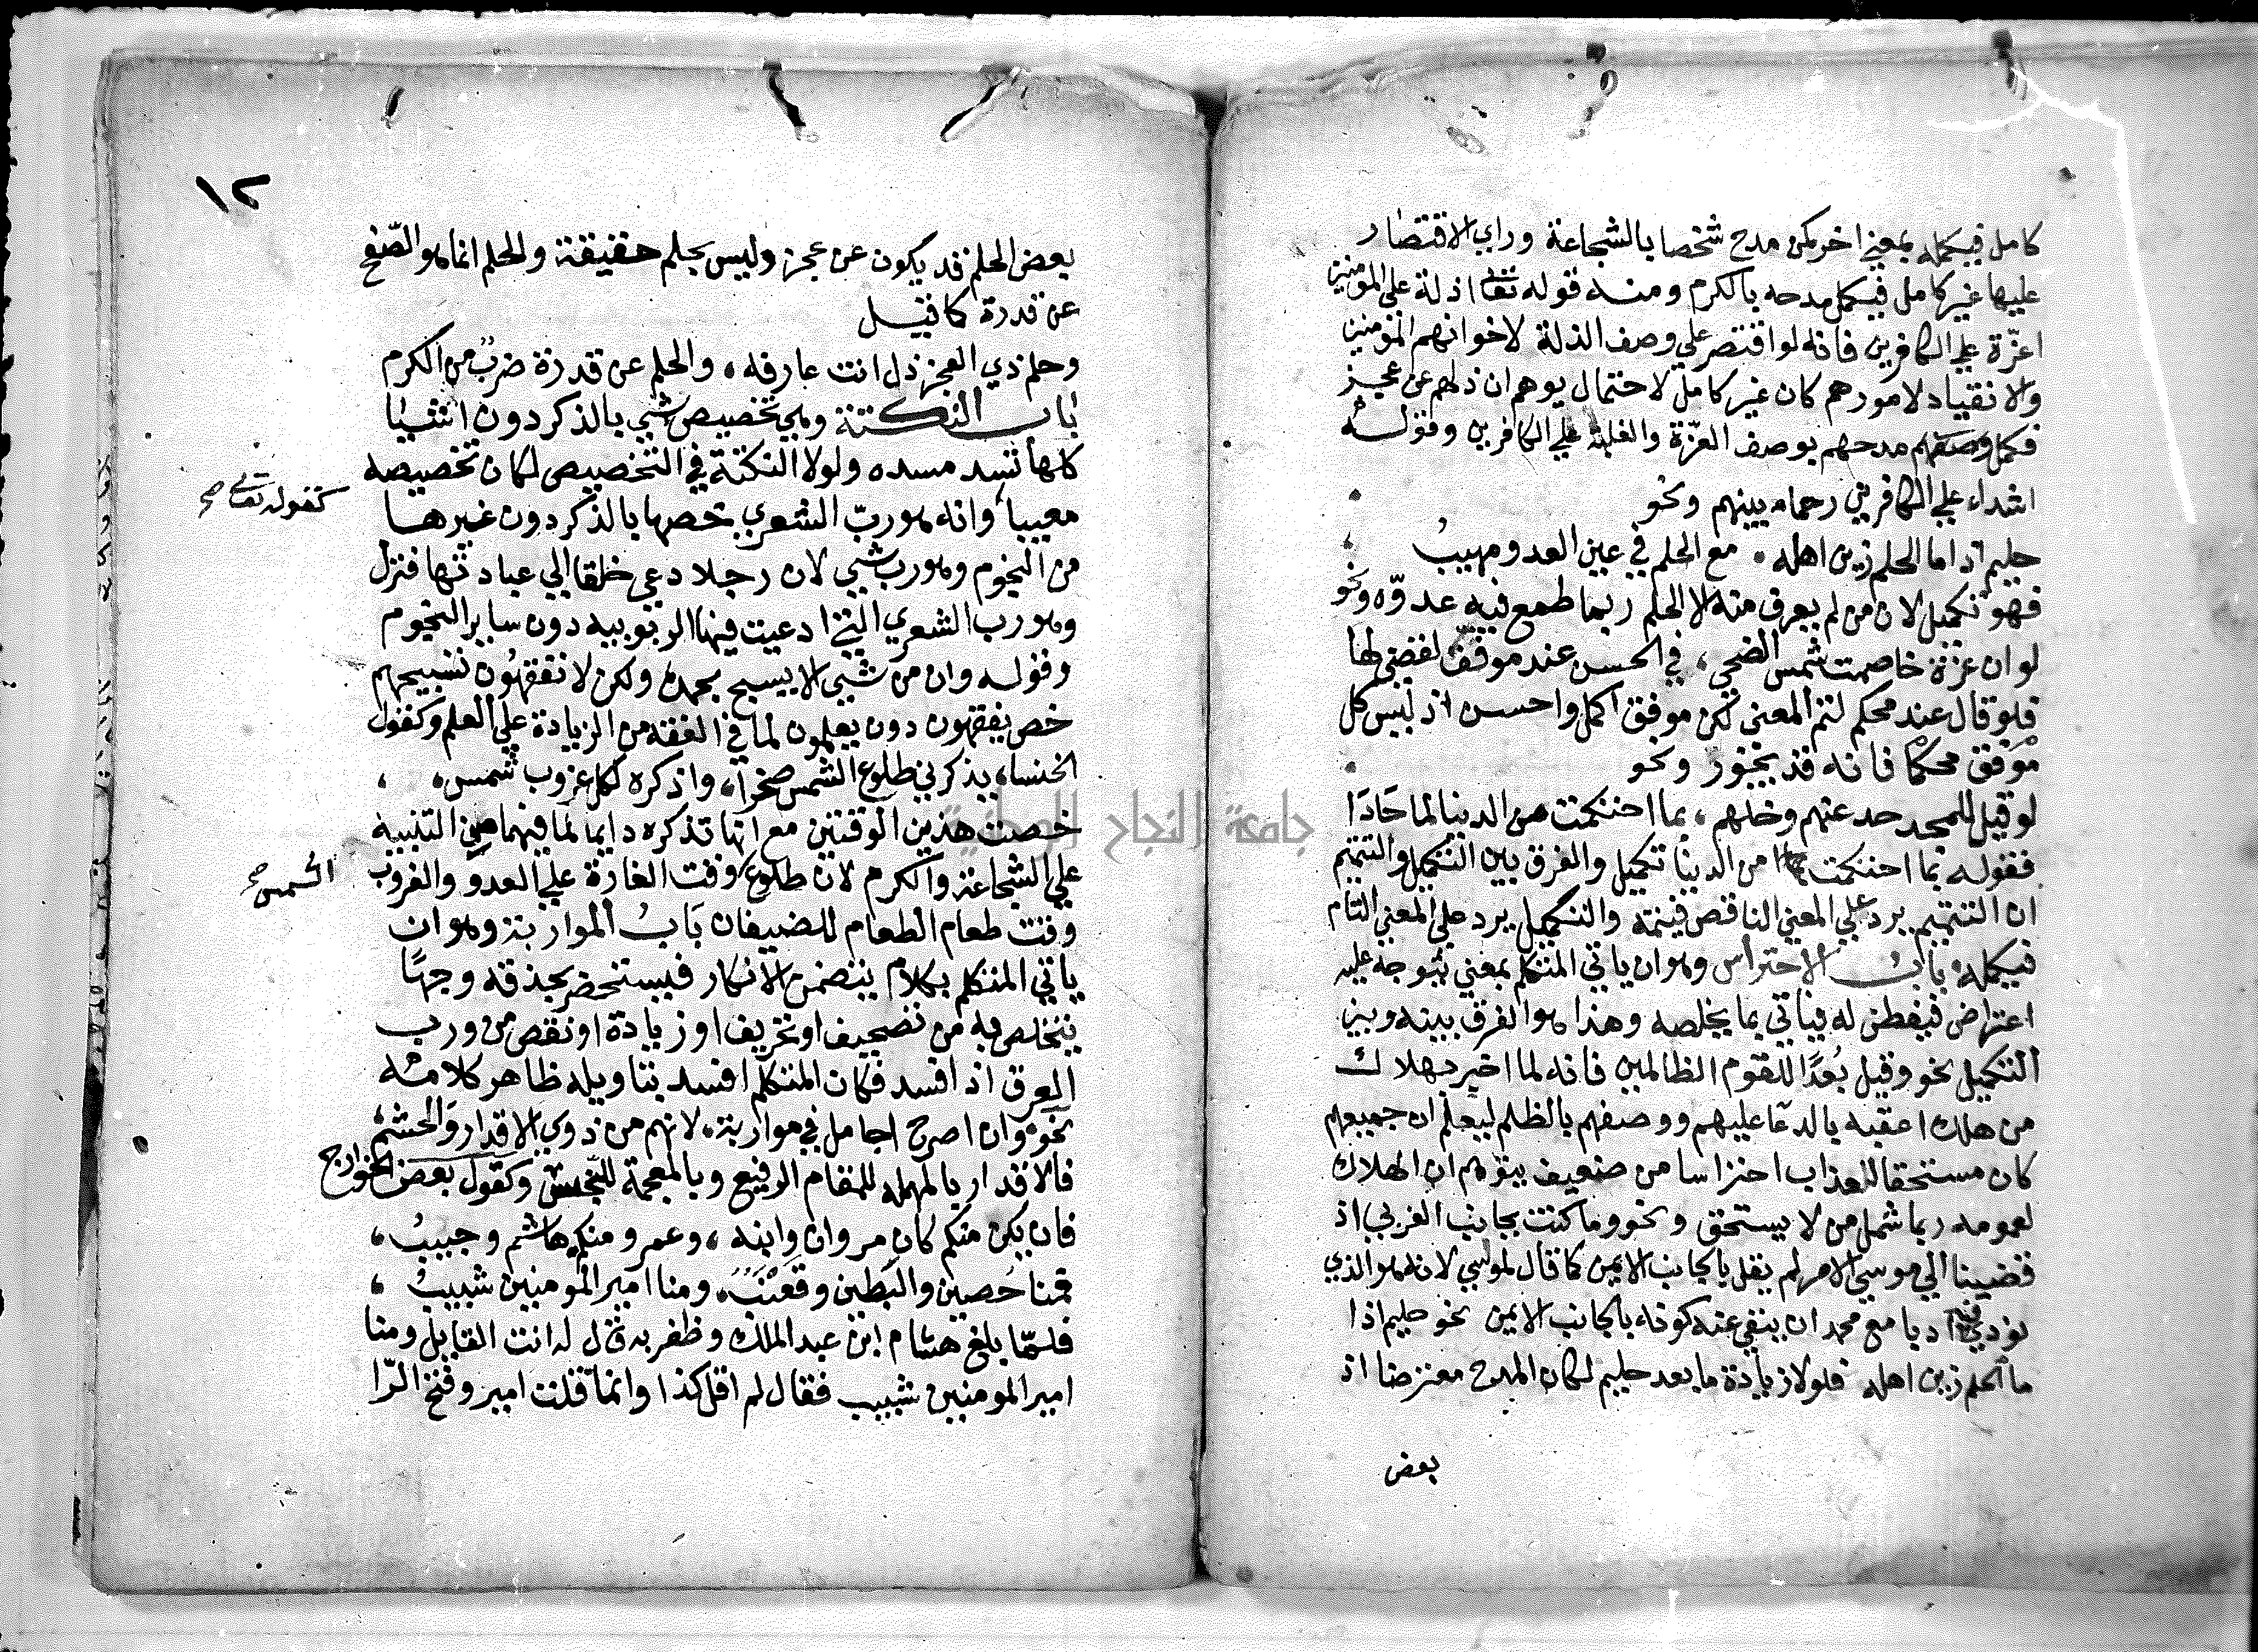 كامل فيكمله بمعني اخر كمن مدح شخصا بالشجاعة وراي الاقتصار
عليها غير كامل فيكمل مدحه بالكرم ومنه قوله تعالى اذلة علي المومنين
اعزّة علي الكافرين فانه لو اقتصر علي وصف الذلة لاخوانهم المؤمنين
والانقياد لامورهم كان غير كامل لاحتمال يوهم ان ذلهم عن عجز
فكمل مدحهم بوصف العزّة والغلبة علي الكافرين وقوله
اشداء علي الكافرين رحماء بينهم ونحو
حليم اذا ما الحلم زين اهله ، مع الحلم في عين العدو مهيبُ
فهو تكميل لان من لم يعرف منه الا الحلم ربما طمع فيه عدوّه ونحو
لو ان عزة خاصمت شمس الضحي ، في الحسن عند موفق لقضي لها
فلو قال عند محكم لتم المعني لكن موفق اكمل واحسن اذ ليس كل
موفق محكما فانه قد يجوز ونحو
لو قيل للمجد حد عنهم وخلهم ، بما احتكمت من الدنيا لما حَادَا
فقوله بما احتكمت من الدنيا تكميل والفرق بين التكميل والتتميم
ان التتميم يرد علي المعني الناقص فيتمه والتكميل يرد علي المعني التام
فيكمله باب الاحتراس وهو ان ياتي المتكلم بمعني يتوجه عليه
اعتراض فيفطن له فياتي بما يخلصه وهذا هو الفرق بينه وبين
التكميل نحو وقيل بُعدًا للقوم الظالمين فانه لما اخبر بهلاك
من هلك اعقبه بالدعا عليهم ووصفهم بالظلم ليعلم ان جميعهم
كان مستحقا للعذاب احتراسا من ضعيف يتوهم ان الهلاك
لعمومه ربما شمل من لا يستحق ونحو وما كنت بجانب الغربي اذ
قضينا الي موسي الامر لم يقل بالجانب الايمن كما قال لموسي لانه هو الذي
نودي ادبا مع محمد ان ينفي عنه كونه بالجانب الايمن نحو حليم اذا
ما الحلم زين اهله فلولا زيادة ما بعد حليم لكان المدح معترضا اذ
بعض
١٢
بعض الحلم قد يكون عن عجز وليس بحلم حقيقة والحلم انما هو الصّفح
عن قدرة كما قيل
وحلم ذي العجز ذل انت عارفه ، والحلم عن قدرة ضربٌ من الكرم
باب النكتة وهي تخصيص شي بالذكر دون اشيا
كلها تسد مسده ولولا النكتة في التخصيص لكان تخصيصه
معيبا وانه هو ربّ الشعري خصها بالذكر دون غيرها
كقوله تعالى صح
من النجوم وهو رب شي لان رجلا دعي خلقا الي عبادتها فنزل
وهو رب الشعري التي ادعيت فيها الربوبيه دون ساير النجوم
وقوله وان من شي الا يسبح بحمده ولكن لا تفقهون تسبيحهم
خص يفقهون دون يعلمون لما في الفقه من الزيادة علي العلم وكقول
الخنسا، يذكرني طلوع الشمس صخرا، واذكره لكل غروب شمس ،
خصت هذين الوقتين مع انها تذكره دايما لما فيهما من التنبيه
علي الشجاعة والكرم لان طلوع وقت الغارة علي العدو والغروب
الشمس صح
وقت طعام الطعام للضيفان بَابُ الموازبة وهو ان
ياتي المتكلم بكلام يتضمن الانكار فيستحضر بحذقه وجهًا
يتخلص به من تصحيف او تحريف او زيادة او نقص من ورب
العرق اذا فسد فكان المتكلم افسد بتاويله ظاهر كلامه
نحو وان اصرح اجامل في مواربة، لانهم من ذوي الاقدار والحشم
فالاقدار بالمهمله للمقام الرفيع وبالمعجمة وكقول بعض الخوارج
فان يكن منكم كان مروان وابنه ، وعمرو منكم هاشم وحبيبُ ،
فمنا حُصين والبَطين وقعنَب، ومنا امير المومنين شبيبُ ،
فلمّا بلغ هشام ابن عبد الملك وظفر به قال له انت القايل ومنا
امير المومنين شبيب فقال لم اقل كذا وانما قلت امير وفتح الرّا
جامعة النجاح الوطنية